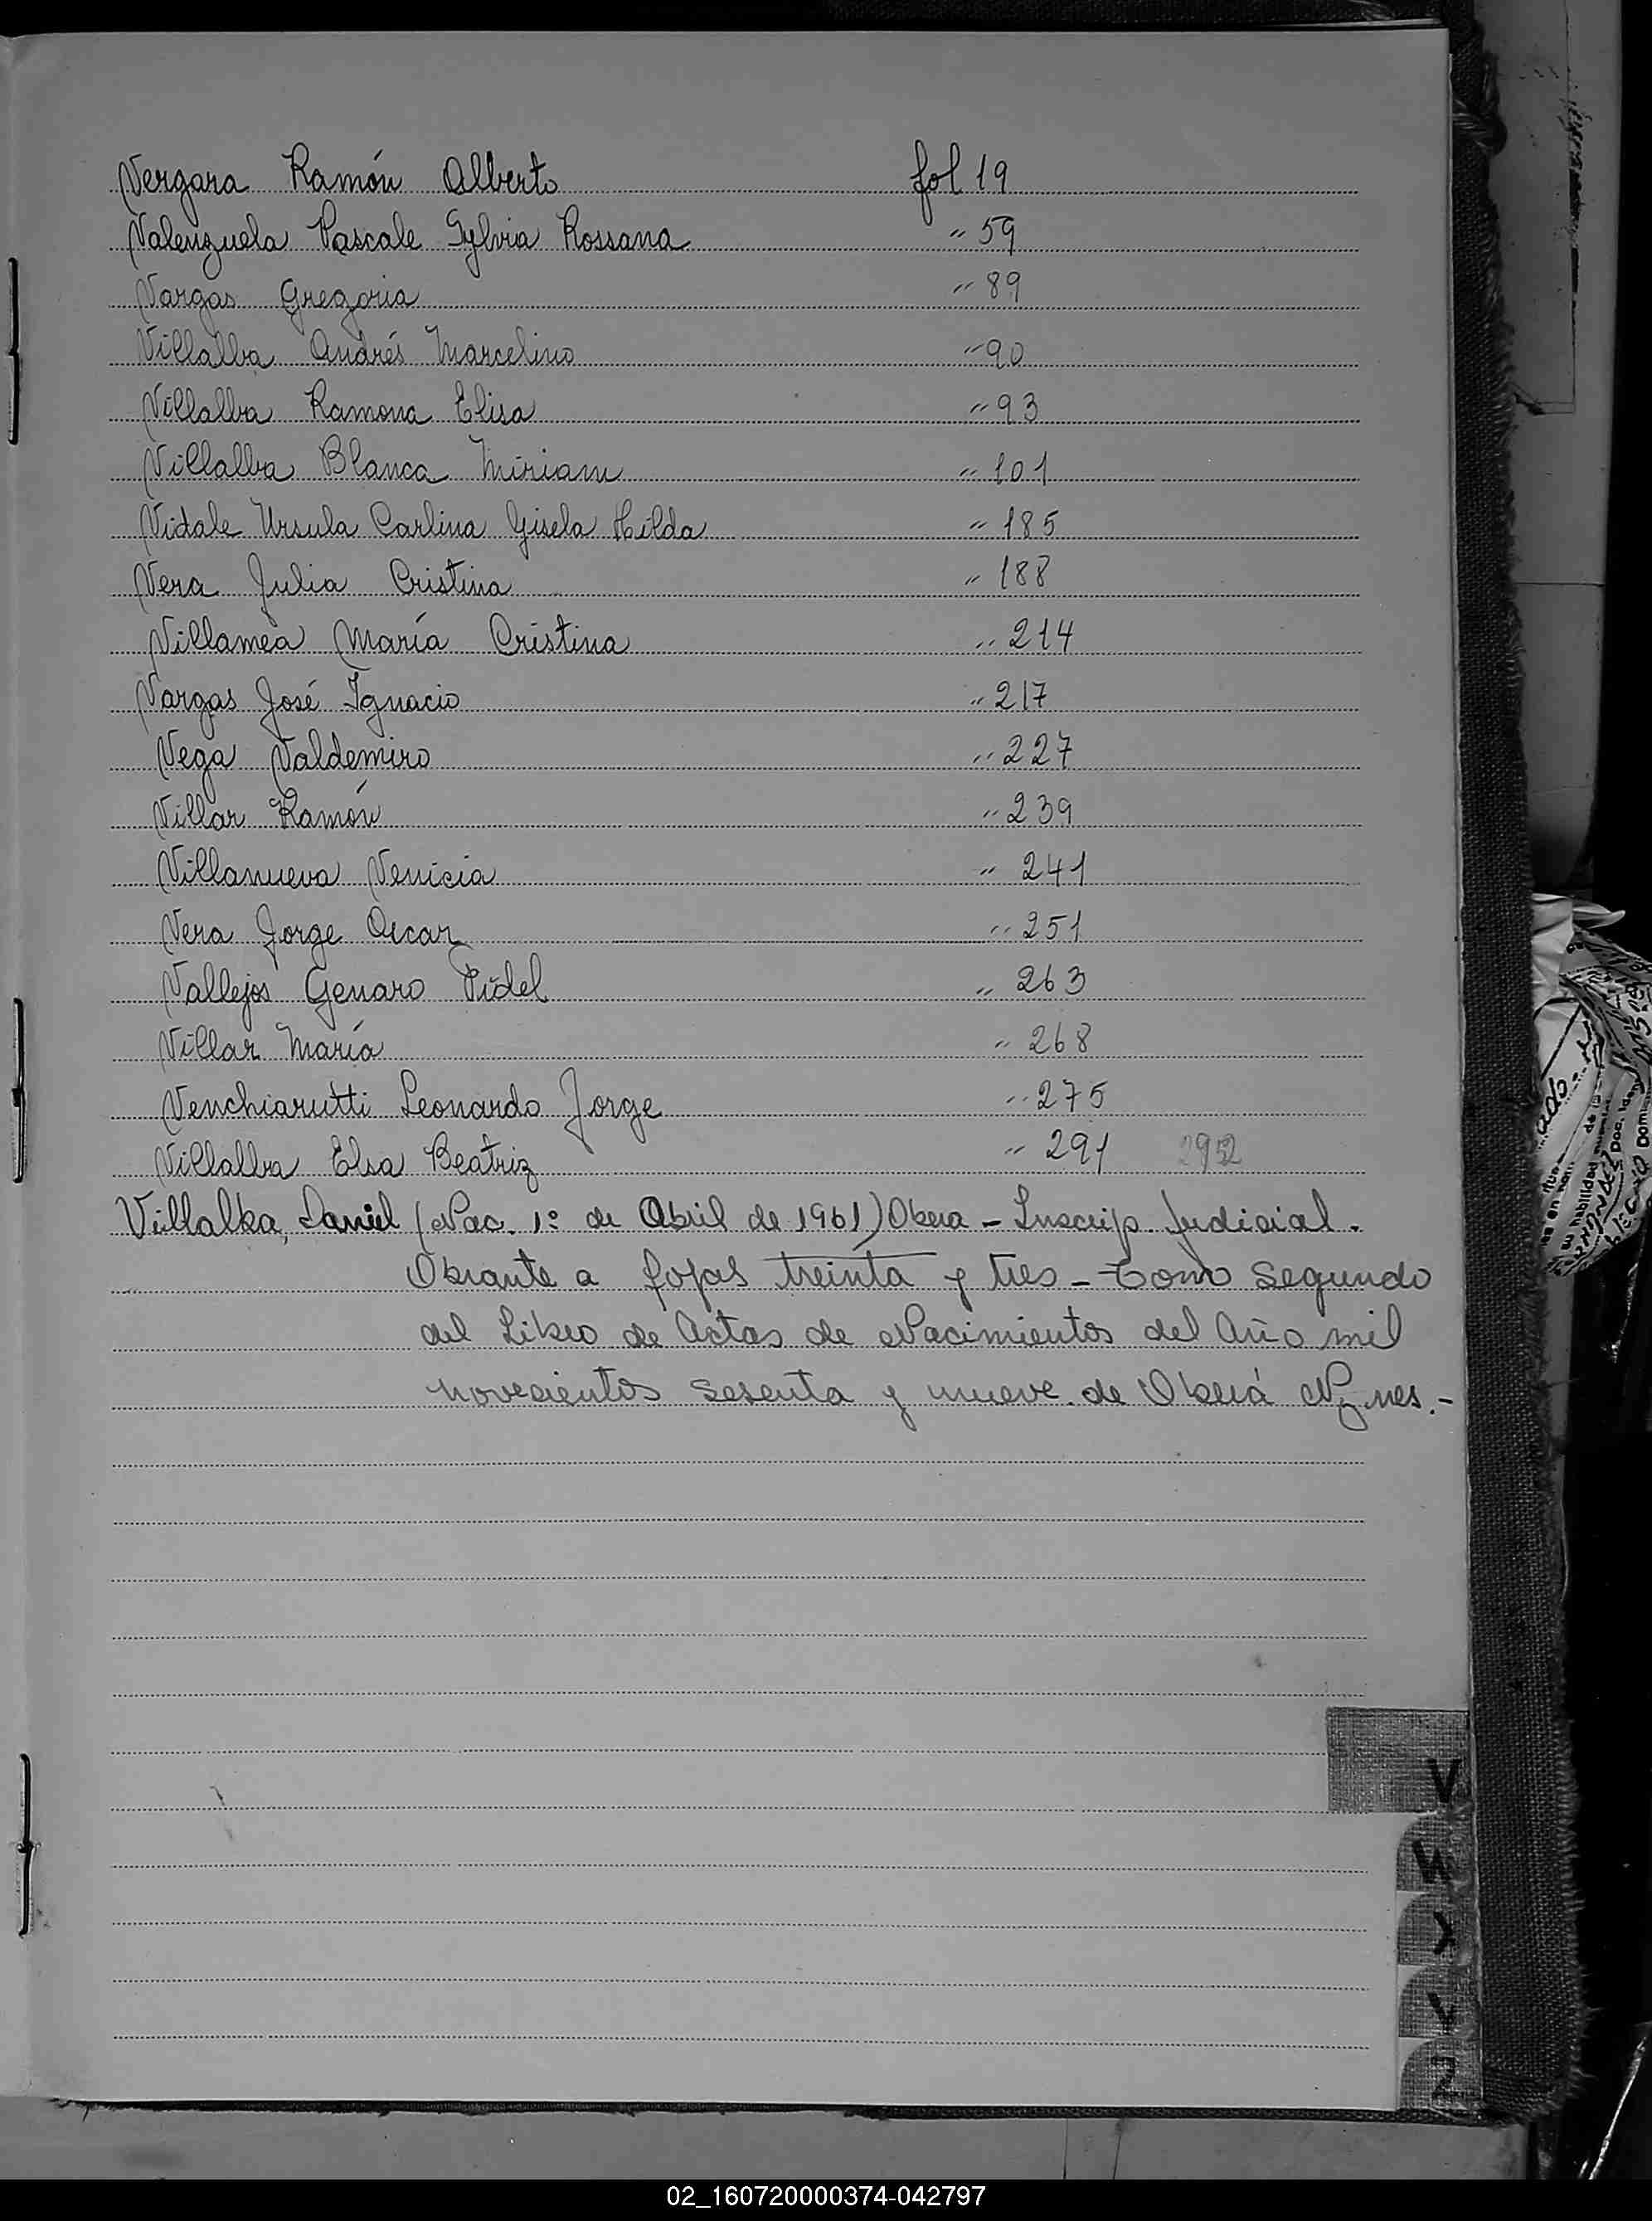 Vergara Ramón Alberto fol 19
Valenzuela Pascale Sylvia Rossana " 59
Vargas Gregoria " 89
Villalba Andrés Marcelino " 90
Villalba Ramona Elisa " 93
Villalba Blanca Miriam " 101
Vidale Ursula Carlina Gisela Hilda " 185
Vera Julia Cristina " 188
Villamea María Cristina " 214
Vargas José Ignacio " 217
Vega Valdemiro " 227
Villar Ramón " 239
Villanueva Venicia " 241
Vera Jorge Oscar " 251
Vallejos Genaro Fidel " 263
Villar María " 268
Venchiarutti Leonardo Jorge " 275
Villalba Elsa Beatriz " 291 292
Villalba, Daniel (Nac. 1º de Abril de 1961) Obera - Inscrip. Judicial.
Obrante a fojas treinta y tres - Tomo Segundo
del Libro de Actas de Nacimientos del Año mil
novecientos sesenta y nueve de Oberá Mnes.-
V
W
X
Y
Z
02_160720000374-042797